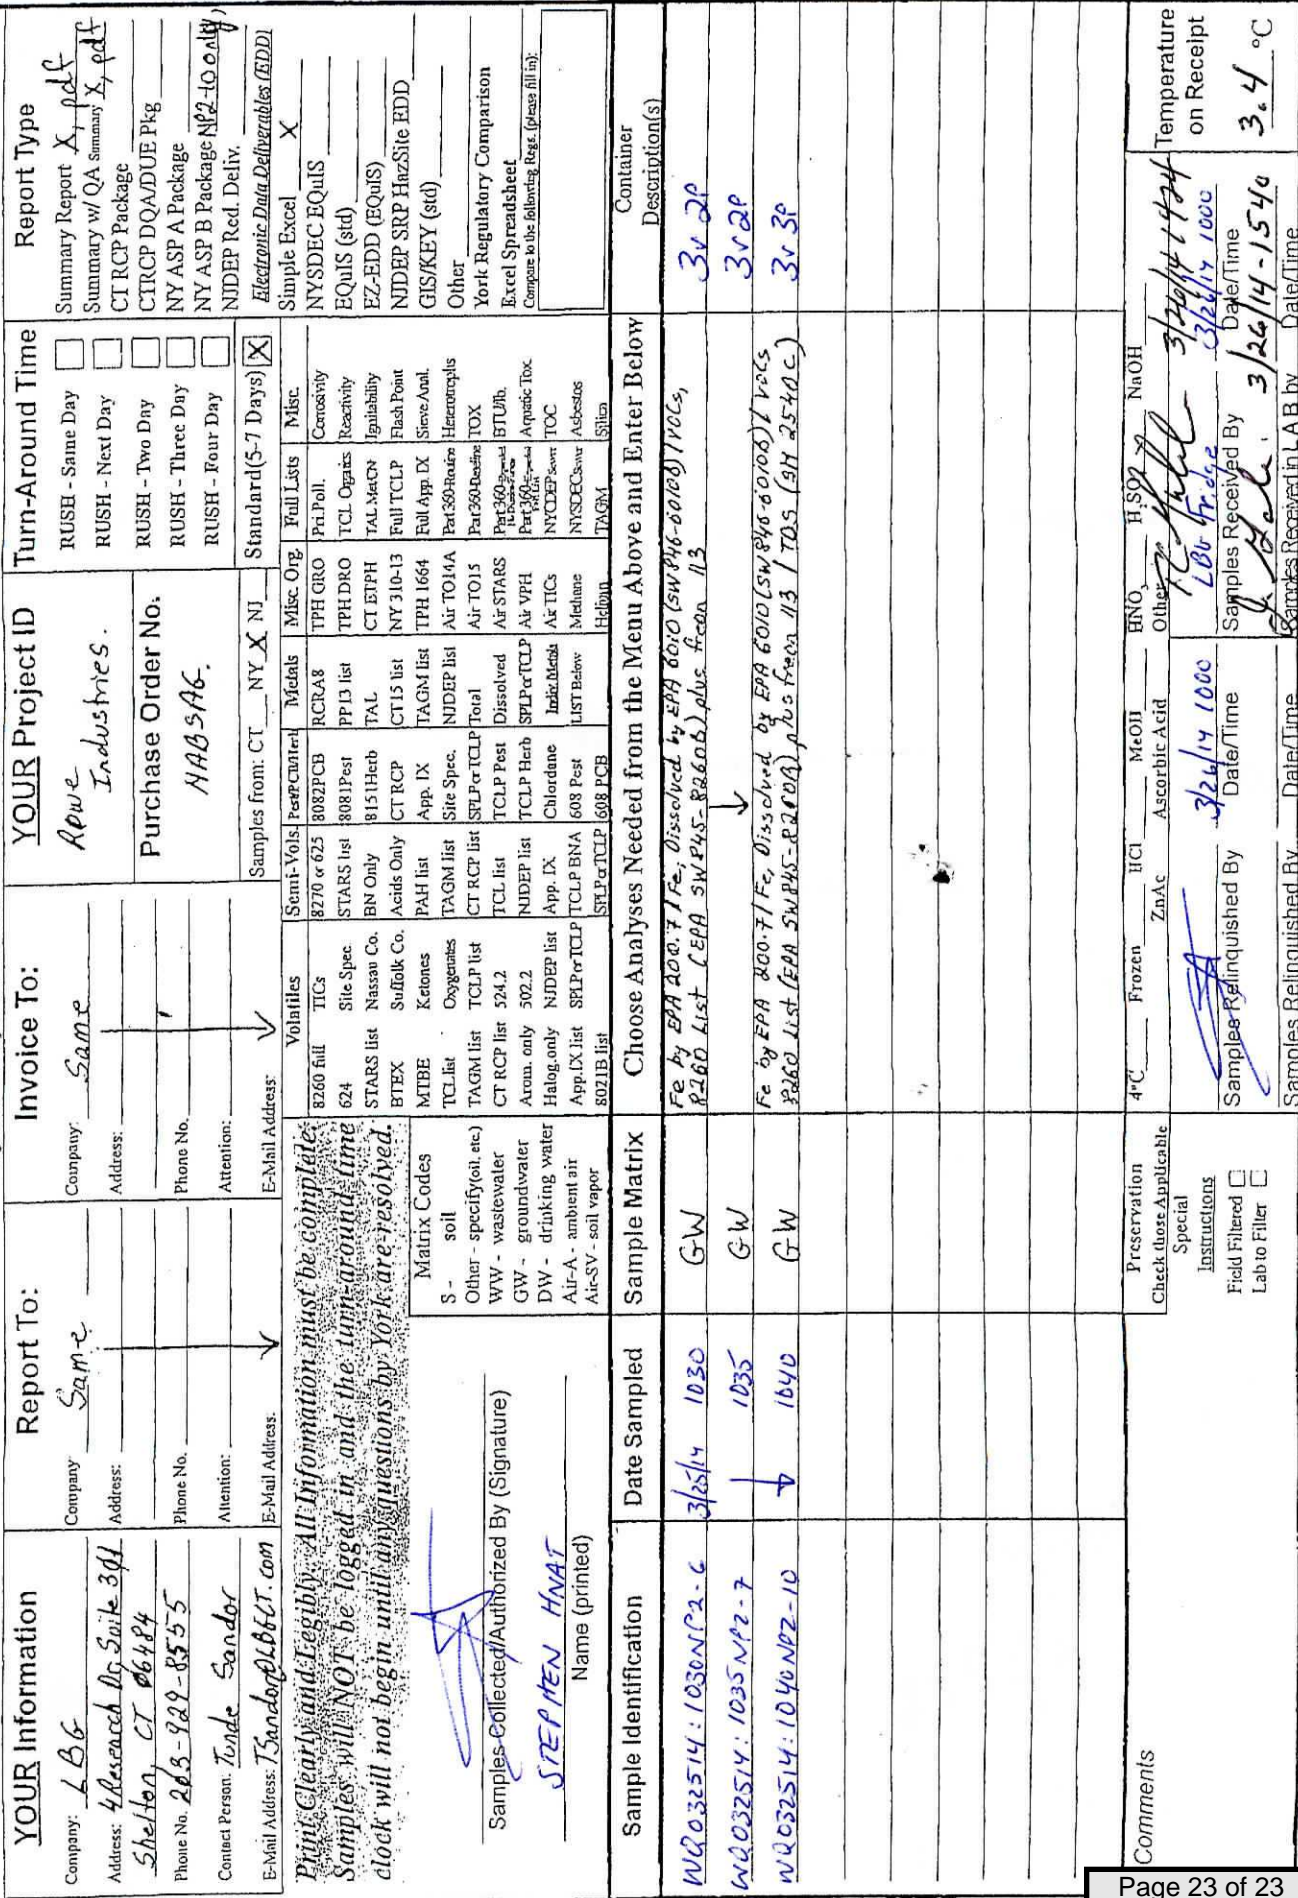 YOUR Information
Company: LBG
Address: 4 Research Dr, Suite 301
Shelton, CT 06484
Phone No. 203-929-8555
Contact Person: Tunde Sandor
E-Mail Address: TSandor@LBGCT.com
Report To:
Company Same
Address:
Phone No.
Attention:
E-Mail Address:
Invoice To:
Company: Same
Address:
Phone No.
Attention:
E-Mail Address:
YOUR Project ID
Rowe
Industries.
Purchase Order No.
Samples from: CT__ NY X NJ__
Turn-Around Time
RUSH - Same Day
RUSH - Next Day
RUSH - Two Day
RUSH - Three Day
RUSH - Four Day
Standard(5-7 Days) X
Report Type
Summary Report X, pdf
Summary w/ QA Summary X, pdf
CT RCP Package
CTRCP DQA/DUE Pkg
NY ASP A Package
NY ASP B Package NP2-10 only
NJDEP Red. Deliv.
Electronic Data Deliverables (EDD)
Simple Excel X
NYSDEC EQuIS
EQuIS (std)
EZ-EDD (EQuIS)
NJDEP SRP HazSite EDD
GIS/KEY (std)
Other
York Regulatory Comparison
Excel Spreadsheet
Compare to the following Regs. (please fill in):
Print Clearly and Legibly. All Information must be complete.
Samples will NOT be logged in and the turn-around time
clock will not begin until any questions by York are resolved.
Samples Collected/Authorized By (Signature)
STEPHEN HNAT
Name (printed)
Matrix Codes
S - soil
Other - specify(oil, etc.)
WW - wastewater
GW - groundwater
DW - drinking water
Air-A - ambient air
Air-SV - soil vapor
Volatiles
8260 full TICs
624 Site Spec
STARS list Nassau Co.
BTEX Suffolk Co.
MTBE Ketones
TCL list Oxygenates
TAGM list TCLP list
CT RCP list 524.2
Arom. only 502.2
Halog. only NJDEP list
App. IX list SPLPorTCLP
8021B list
Semi-Vols.
8270 or 625
STARS list
BN Only
Acids Only
PAH list
TAGM list
CT RCP list
TCL list
NJDEP list
App. IX
TCLP BNA
SPLPorTCLP
Pest/PCB/Herb
8082PCB
8081Pest
8151Herb
CT RCP
App. IX
Site Spec.
SPLPorTCLP
TCLP Pest
TCLP Herb
Chlordane
608 Pest
608 PCB
Metals
RCRA8
PP13 list
TAL
CT15 list
TAGM list
NJDEP list
Total
Dissolved
SPLPorTCLP
Indiv. Metals
LIST Below
Misc. Org
TPH GRO
TPH DRO
CT ETPH
NY 310-13
TPH 1664
Air TO14A
Air TO15
Air STARS
Air VPH
Air TICs
Methane
Helium
Full Lists
Pri. Poll.
TCL Oganics
TAL MetCN
Full TCLP
Full App. IX
Part 360-Routine
Part 360-Baseline
NYCDEP Sewer
NYSDEC Sewer
TAGM
Misc.
Corrosivity
Reactivity
Ignitability
Flash Point
Sieve Anal.
Heterotrophs
TOX
BTU/lb.
Aquatic Tox
TOC
Asbestos
Silica
Sample Identification
Date Sampled
Sample Matrix
Choose Analyses Needed from the Menu Above and Enter Below
Container
Description(s)
WQ032514:1030NP2-6 3/25/14 1030 GW Fe by EPA 200.7/Fe, Dissolved by EPA 6010 (SW846-6010B)/VOCs, 3v 2P
8260 List (EPA SW845-8260B) plus freon 113
WQ032514:1035NP2-7 1035 GW ↓ 3v 2P
WQ032514:1040NP2-10 ↓ 1040 GW Fe by EPA 200.7/Fe, Dissolved by EPA 6010 (SW846-6010B)/VOCs 3v 3P
8260 List (EPA SW845-8260B) plus freon 113 / TDS (SM 2540C)
Comments
Preservation
Check those Applicable
Special
Instructions
Field Filtered
Lab to Filter
4°C Frozen HCl MeOH HNO3 H2SO4 NaOH
ZnAc Ascorbic Acid Other
3/26/14 1000 LBG Fridge 3/26/14 1000
3/26/14 1424
Samples Relinquished By Date/Time Samples Received By Date/Time
3/26/14-1540
Samples Relinquished By Date/Time Samples Received in LAB by Date/Time
Temperature
on Receipt
3.4 °C
Page 23 of 23